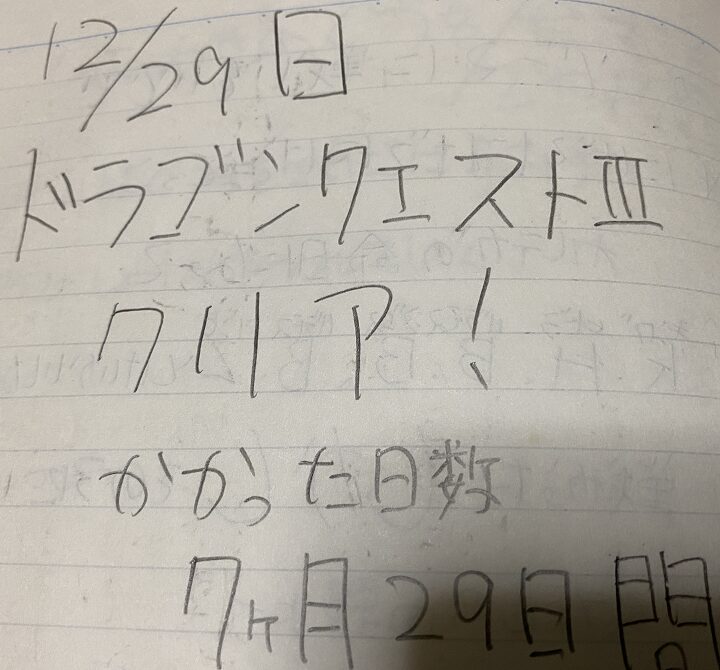 12/29日
ドラゴンクエストⅢ
クリア!
かかった日数
7ヶ月29日間